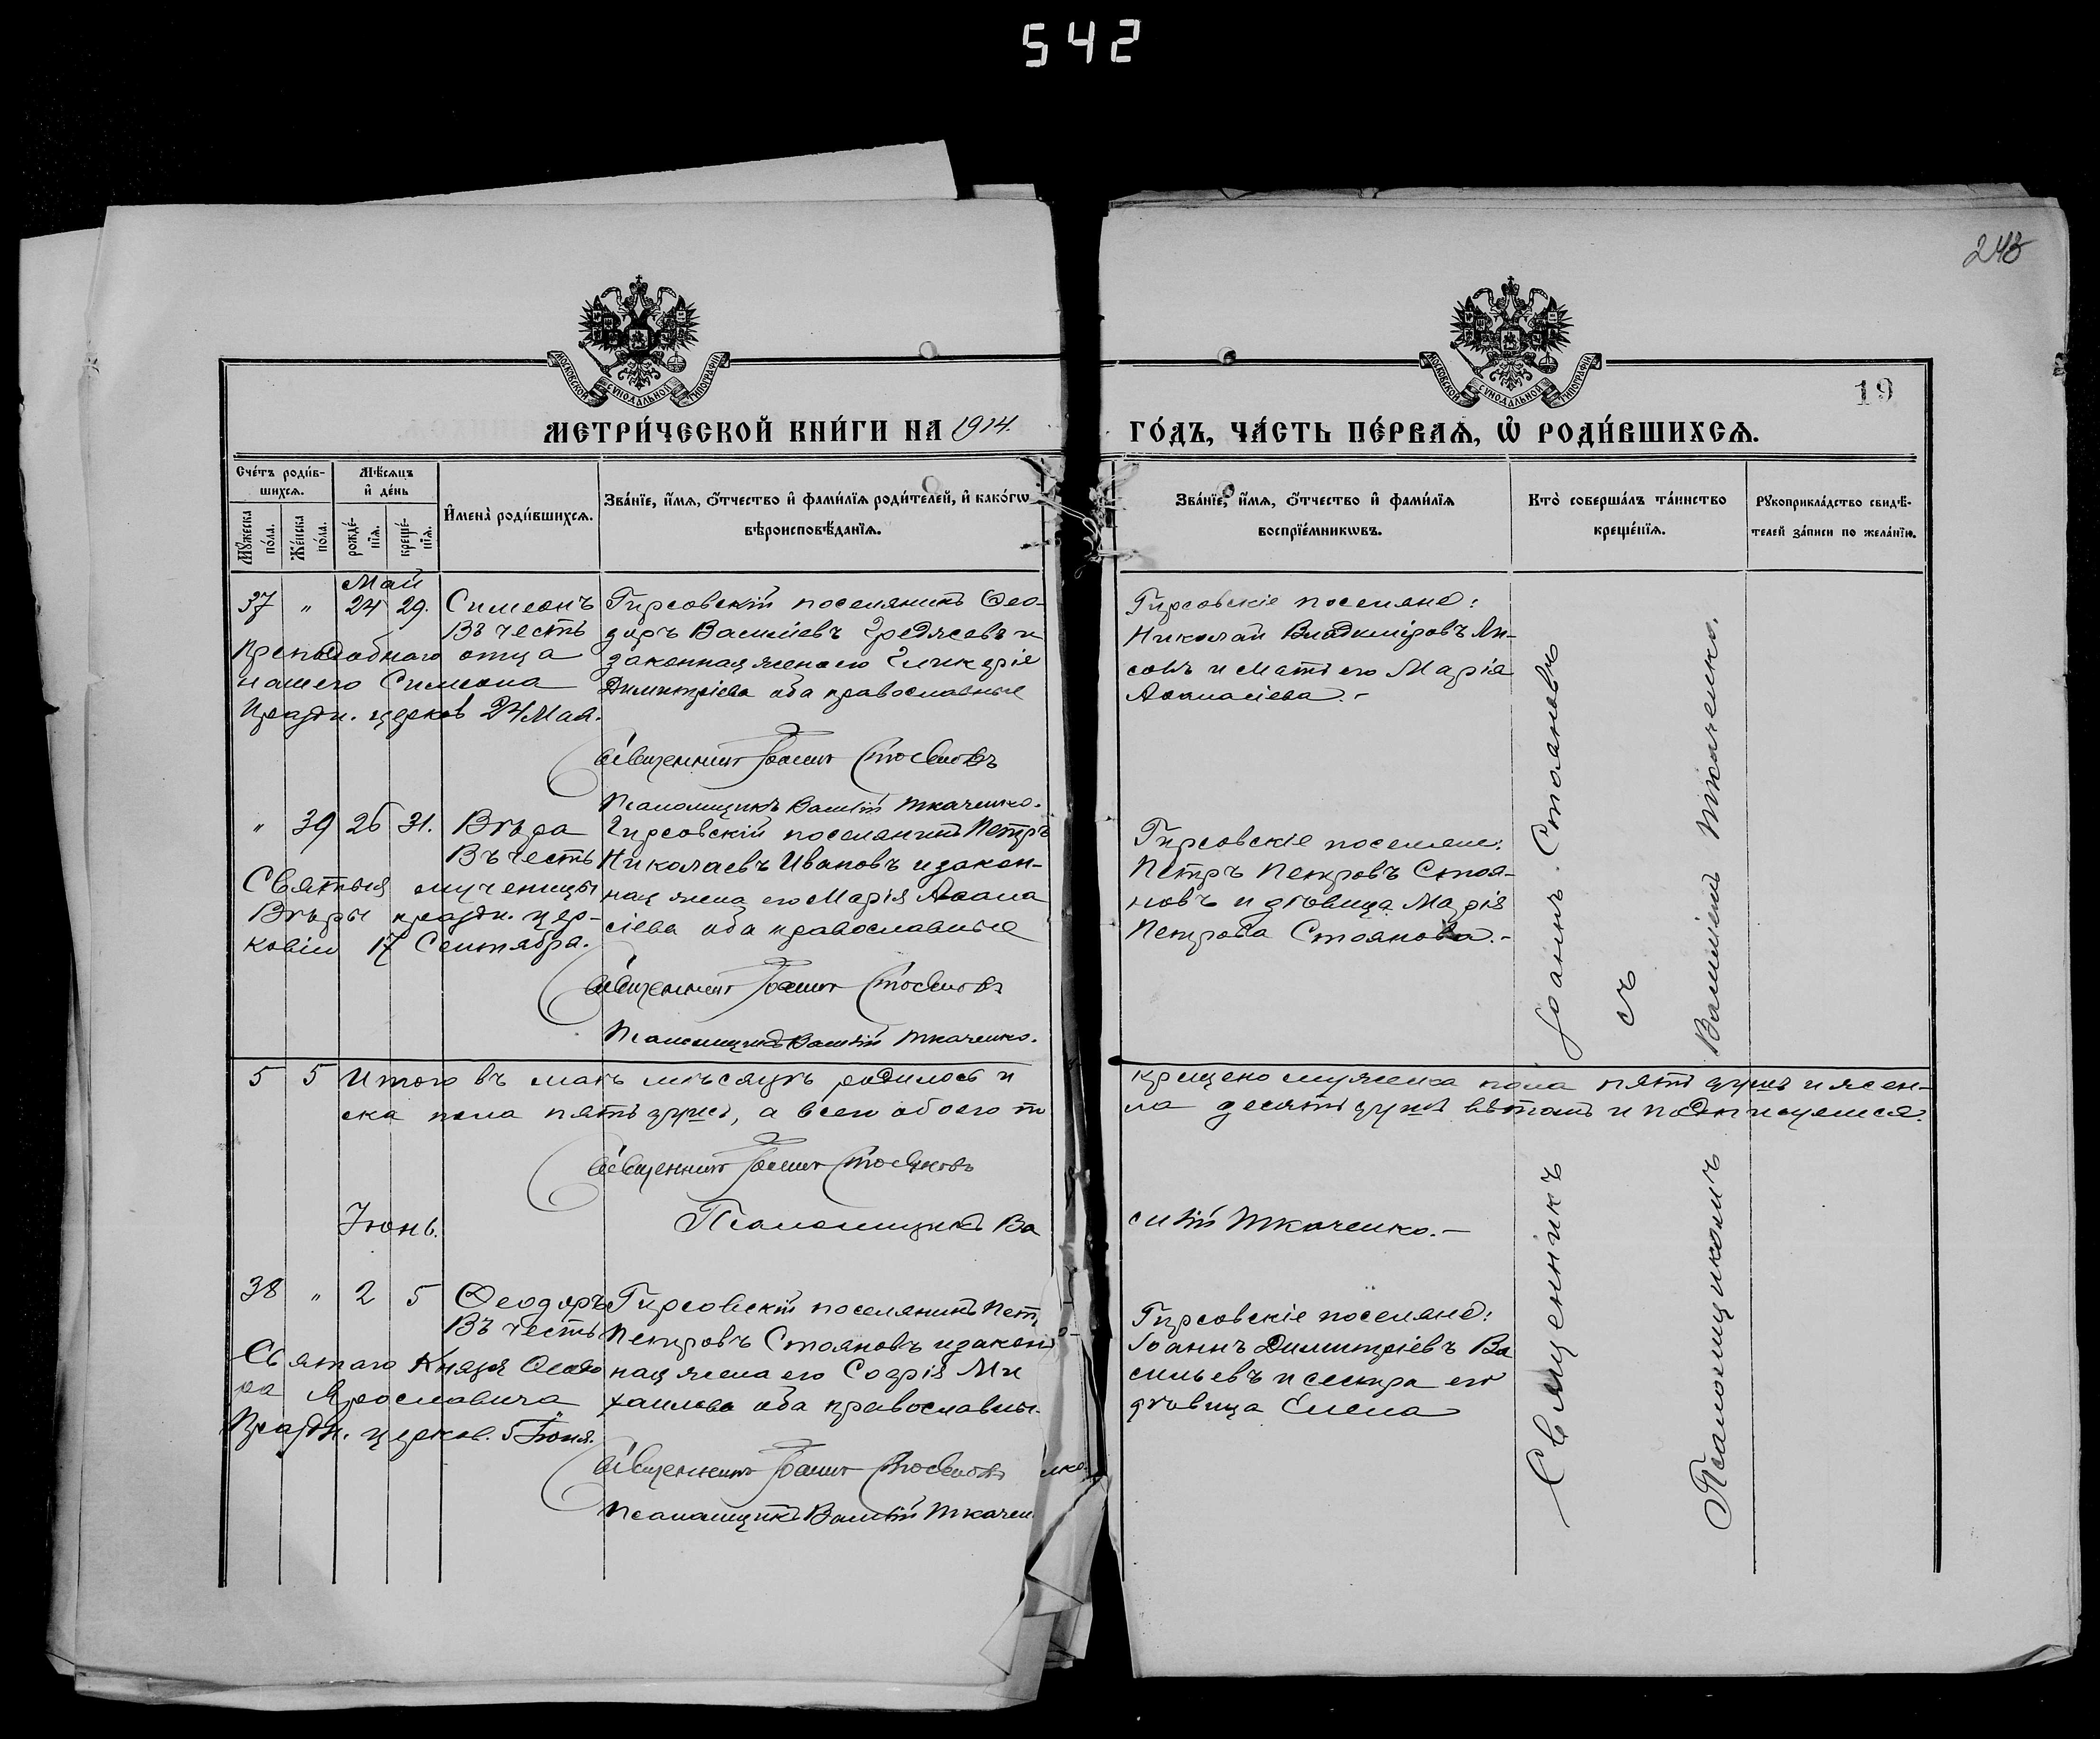 542
243
19
МОСКОВСКОЙ СУНОДАЛЬНОЙ ТИПОГРАФІИ
МОСКОВСКОЙ СУНОДАЛЬНОЙ ТИПОГРАФІИ
МЕТРИ́ЧЕСКОЙ КНИ́ГИ НА 1914.
ГО́ДЪ, ЧА́СТЬ ПЕ́РВАѦ, Ѡ҆ РОДИ́ВШИХСѦ.
Сче́тъ роди́в-
шихсѧ.
Мꙋ́жеска по́ла.
Же́нска по́ла.
Мѣ́сѧцъ
и҆ де́нь
рожде́-
нїѧ.
креще́-
нїѧ.
И҆мена̀ роди́вшихсѧ.
Зва́нїе, и҆́мѧ, ѻ҆́тчество и҆ фами́лїѧ роди́телей, и҆ како́гѡ
вѣроисповѣ́данїѧ.
Зва́нїе, и҆́мѧ, ѻ҆́тчество и҆ фами́лїѧ
воспрїе́мникѡвъ.
Кто̀ соверша́лъ та́инство
креще́нїѧ.
Рꙋкоприкла́дство свидѣ́-
телей за́писи по жела́нїю.
Май
37 " 24 29. Симеонъ
Въ честь
Преподобнаго отца
нашего Симеона
Праздн. церков 24 Мая.
Гирсовскій поселянинъ Ѳео-
доръ Васильевъ и
законная жена его Гликерія
Димитріева оба православные
Священникъ Іоаннъ Стояновъ
Псаломщикъ Василій Ткаченко.
Гирсовскіе поселяне:
Николай Владиміровъ
и мать его Марія
Аѳанасіева.-
" 39 26 31. Вѣра
Въ честь
Святыя мученицы
Вѣры праздн. цер-
ковію 17 Сентября.
Гирсовскій поселянинъ Петръ
Николаевъ Ивановъ и закон-
ная жена его Марія Аѳана
сіева оба православные
Священникъ Іоаннъ Стояновъ
Псаломщикъ Василій Ткаченко.
Гирсовскіе поселяне:
Петръ Петровъ Стоя-
новъ и дѣвица Марія
Петрова Стоянова.-
5 5 Итого въ маѣ мѣсяцѣ родилось и
ска пола пять душъ, а всего обоего по
крещено мужеска пола пять душъ и жен-
ла десять душъ въ томъ и подписуемся.
Священникъ Іоаннъ Стояновъ
Псаломщикъ Ва
силій Ткаченко.-
Іюнь.
38 " 2 5 Ѳеодоръ
Въ честь
Святаго Князя Ѳеодо
ра Ярославича
Праздн. церков. 5 Іюня.
Гирсовскій поселянинъ Пет
Петровъ Стояновъ и закон
ная жена его Софія Ми
хаилова оба православны.
Священникъ Іоаннъ Стояновъ
Псаломщикъ Василій Ткачен
нко.
Гирсовскіе поселяне:
Іоаннъ Димитріевъ Ва
сильевъ и сестра его
дѣвица Елена
Священникъ Іоаннъ Стояновъ
съ
Псаломщикомъ Василіемъ Ткаченко.